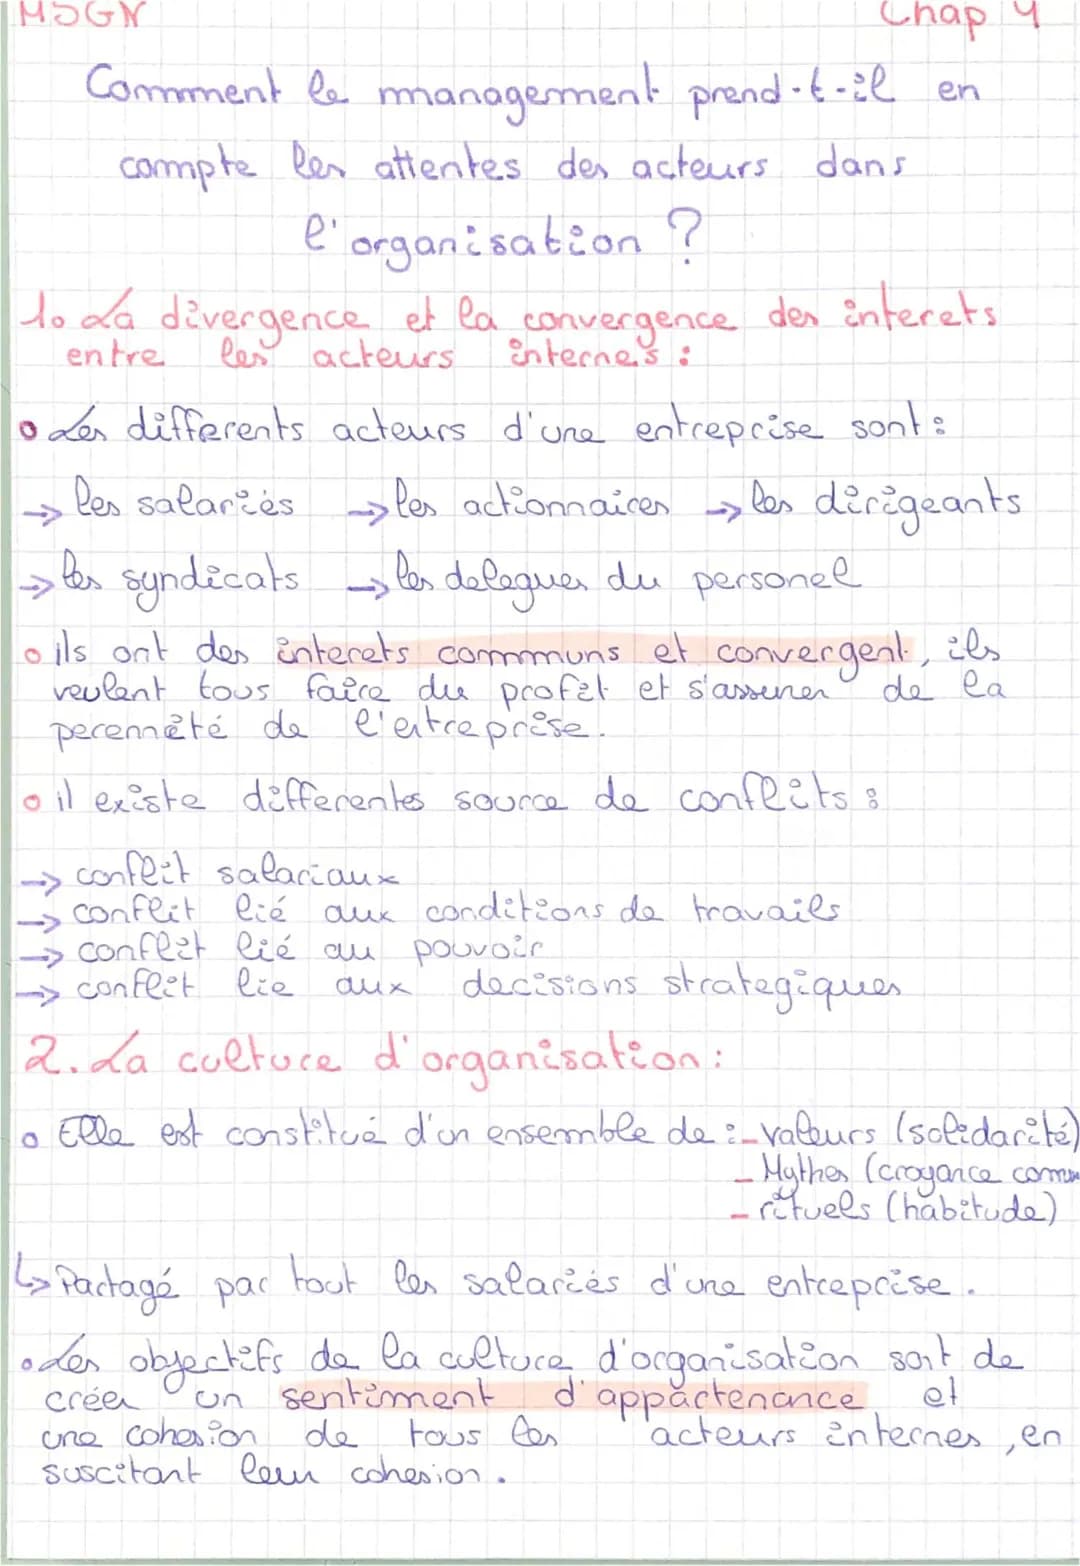 MSGN Chap 4
Comment le management prend-t-il en
compte les attentes des acteurs dans
l'organisation ?
1. La divergence et la convergence des interets
entre les acteurs internes :
Les differents acteurs d'une entreprise sont :
→ les salariés → les actionnaires → les dirigeants
→ les syndicats → les delegues du personel
ils ont des interets communs et convergent, ils
veulent tous faire du profit et s'assurer de la
perennité de l'entreprise.
il existe differentes source de conflits :
→ conflit salariaux
→ conflit lié aux conditions de travails
→ conflit lié au pouvoir
→ conflit lie aux decisions strategiques
2. La culture d'organisation :
Elle est constitué d'un ensemble de : - valeurs (solidarité)
- Mythes (croyance comm
- rituels (habitude)
↳ Partagé par tout les salariés d'une entreprise.
Les objectifs de la culture d'organisation sont de
créer un sentiment d'appartenance et
une cohesion de tous les acteurs internes, en
suscitant leur cohesion.